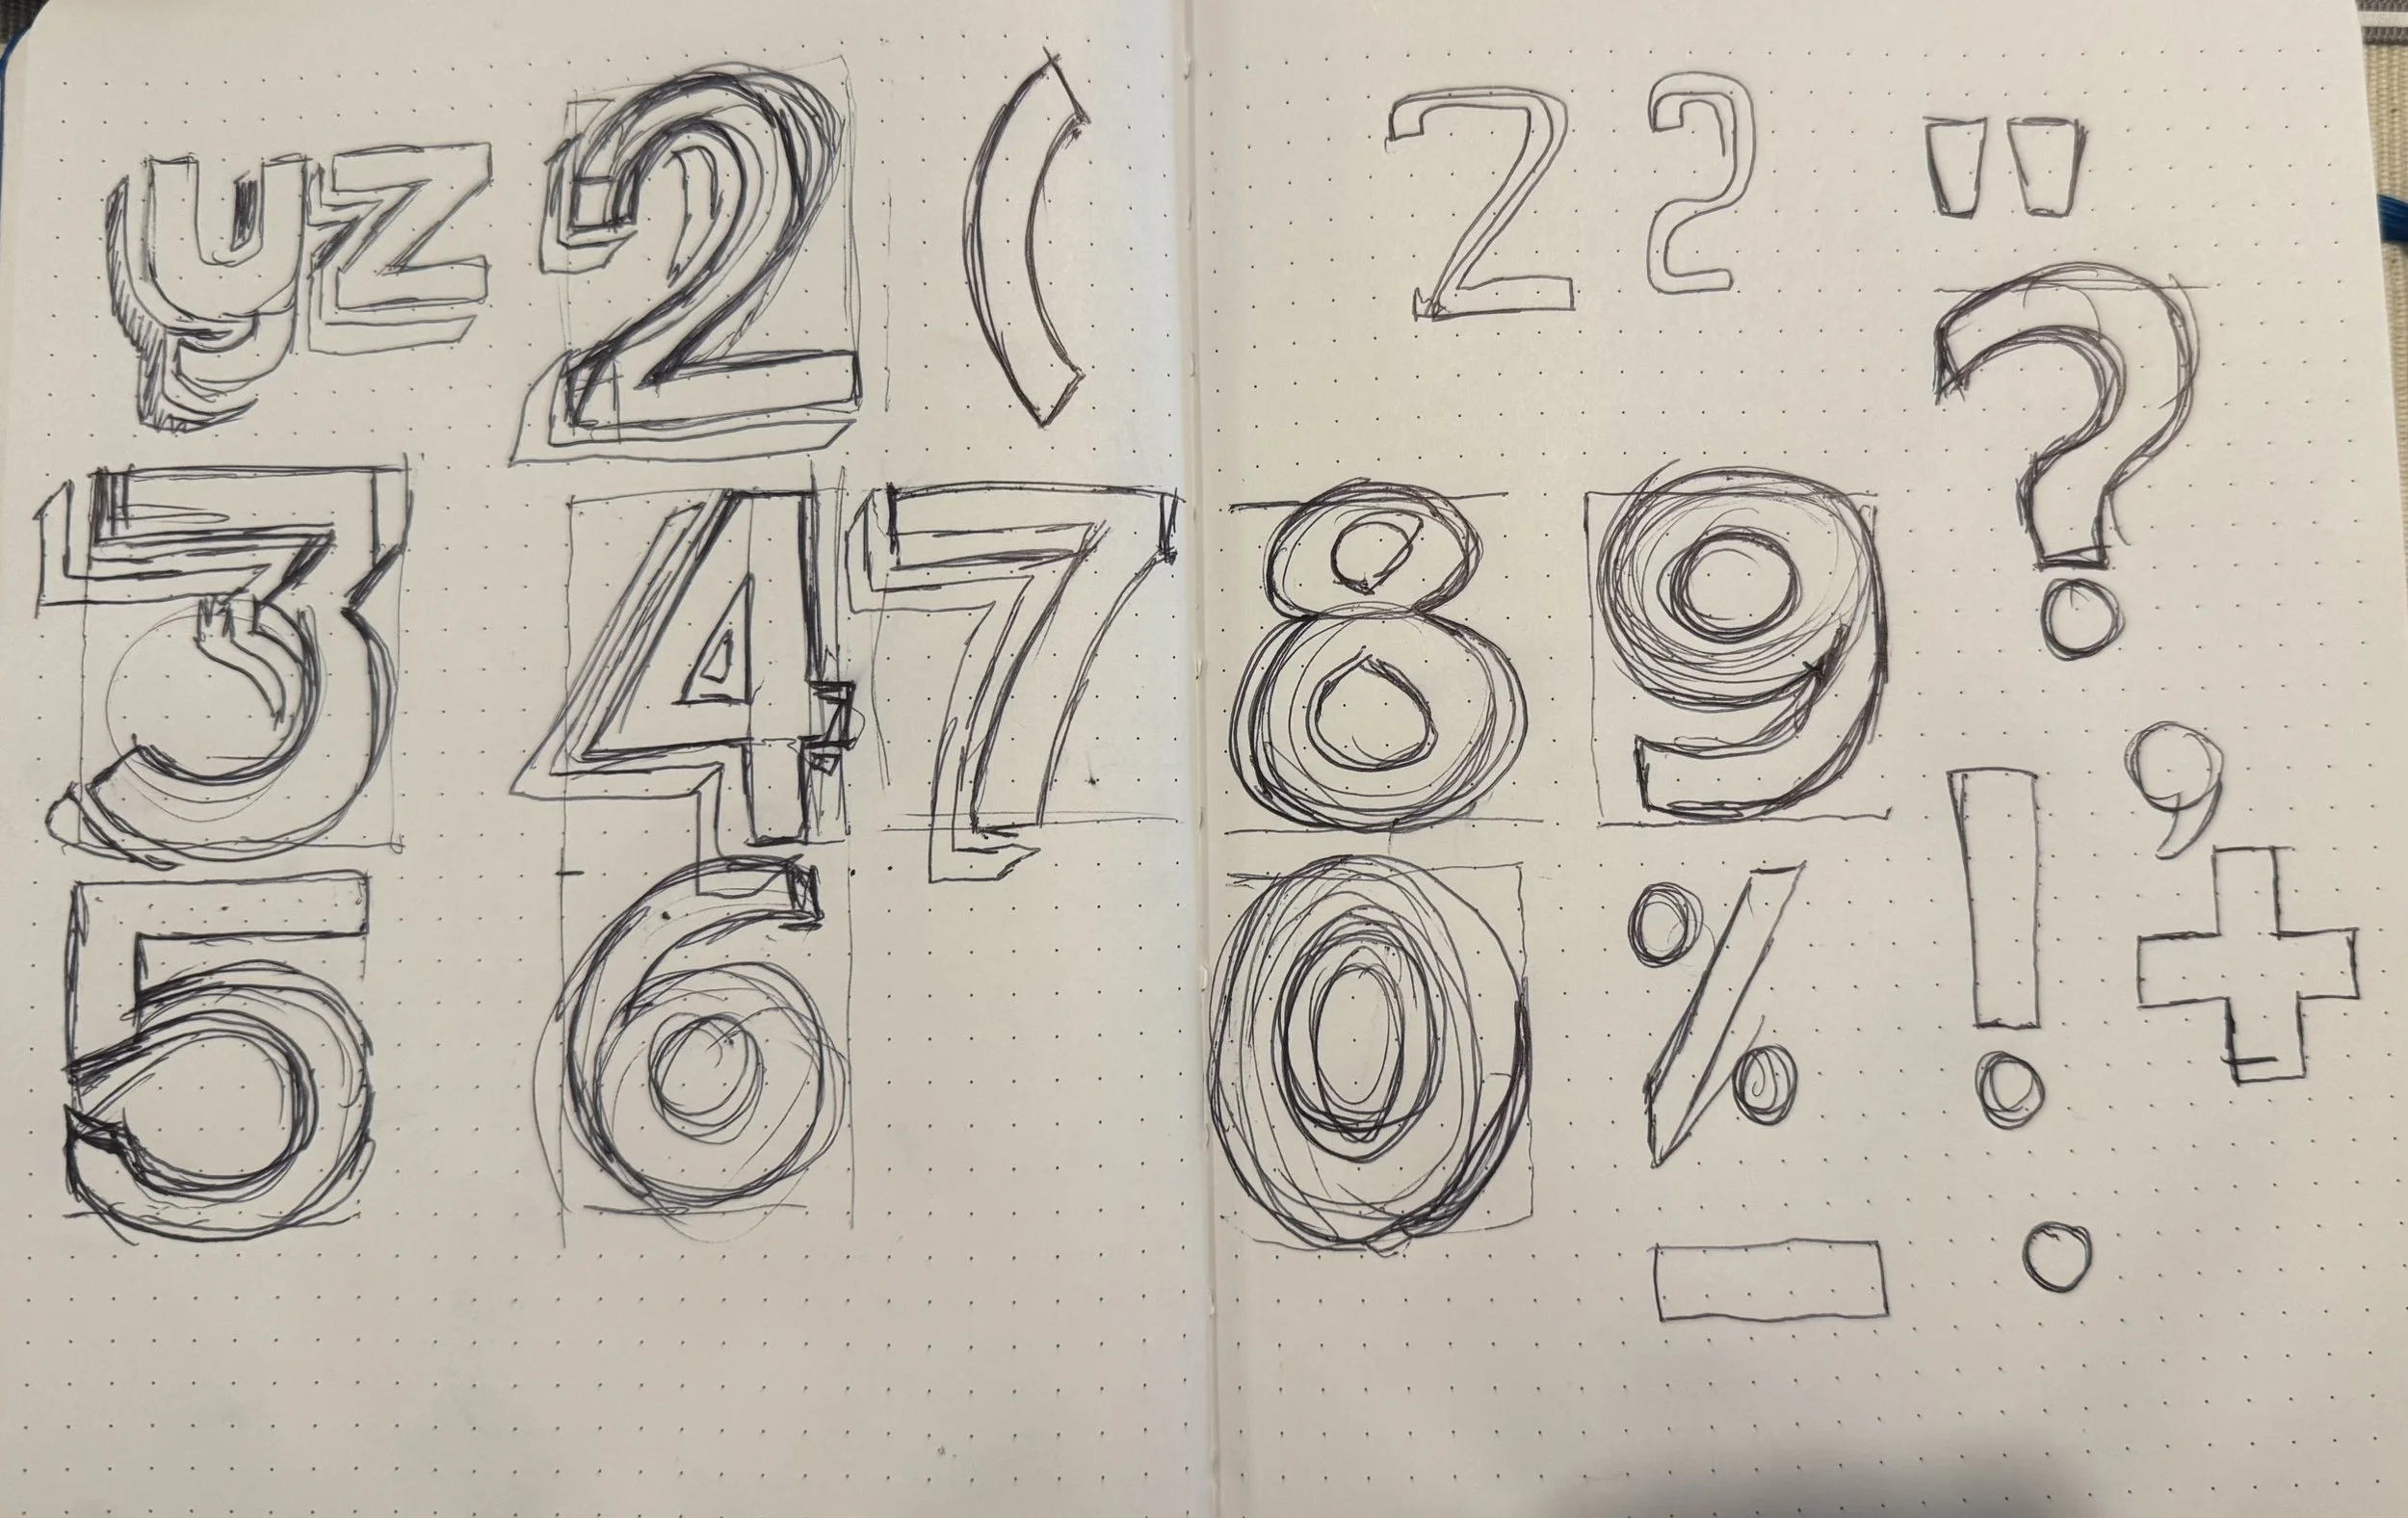 yz 2 (
3 4 7
5 6
2 2 "
8 9 ?
0 % ! , +
- .